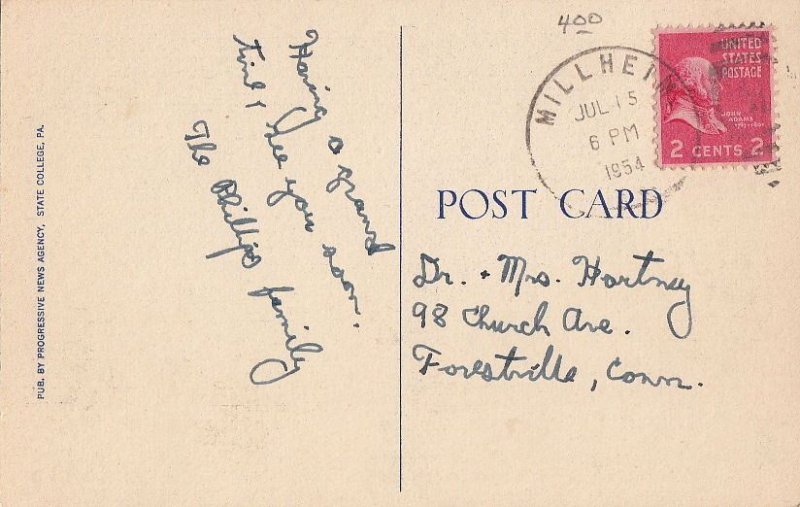 400
MILLHEIM
JUL 15
6 PM
1954
UNITED
STATES
POSTAGE
JOHN
ADAMS
2 CENTS 2
POST CARD
Having a grand
time & see you soon.
The Phillips family
Dr. + Mrs. Hartney
98 Church Ave.
Forestville, Conn.
PUB. BY PROGRESSIVE NEWS AGENCY, STATE COLLEGE, PA.